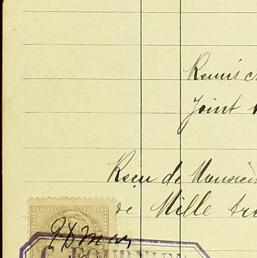 Remis
Joint
Reçu de Monsieur
de Mille tr
28 mar
C. FOURNIER